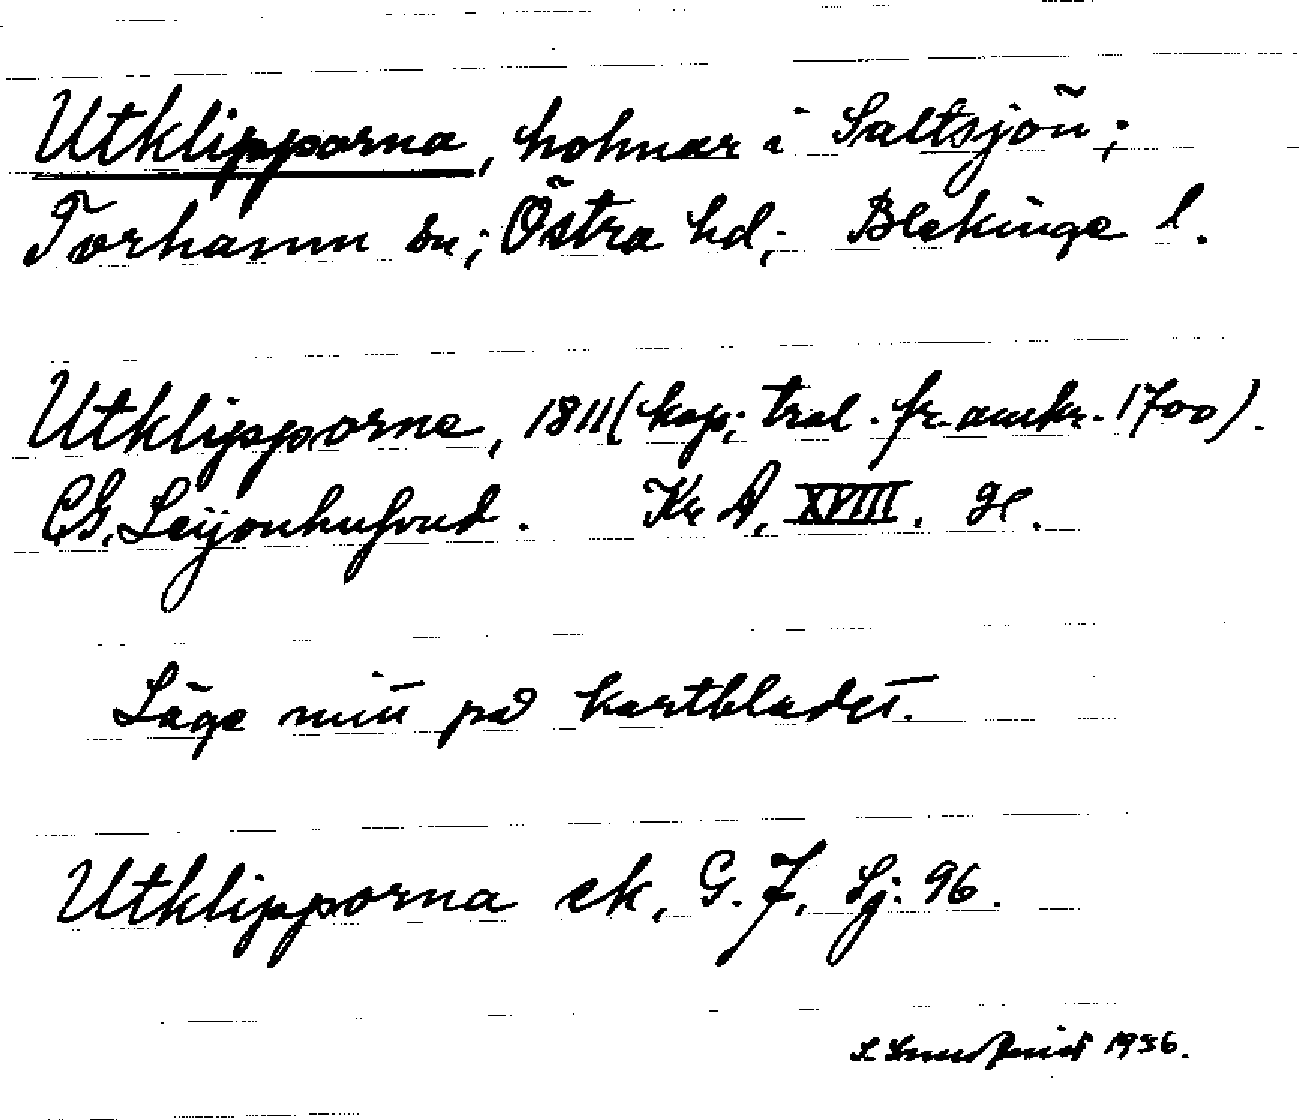 Utklipporna, holmar i Saltsjön;
Torhamn sn; Östra hd, Blekinge l.
Utklipporne, 1811 (kop; tral. fr. amkr. 1700).
CG. Leijonhufvud. Kr A, XVIII, 9l.
Läge mitt på kartbladet.
Utklipporna ek, G. F, Sj: 96.
1936.